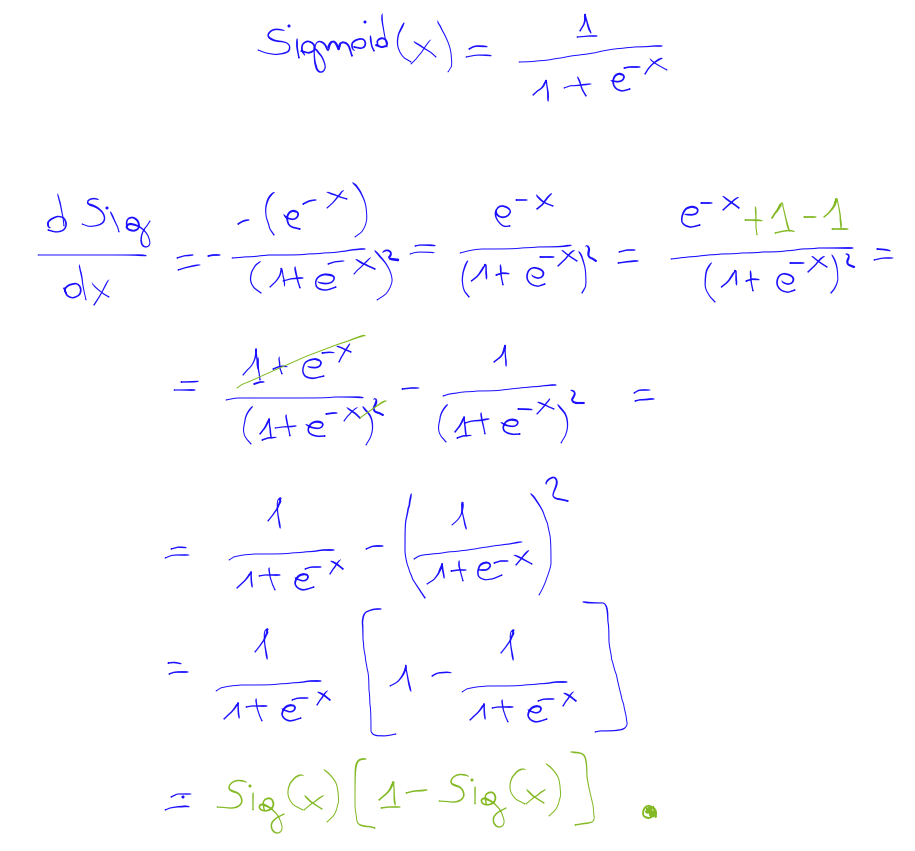 Sigmoid(x) = \frac{1}{1 + e^{-x}}
\frac{d Sig}{dx} = - \frac{-(e^{-x})}{(1 + e^{-x})^2} = \frac{e^{-x}}{(1 + e^{-x})^2} = \frac{e^{-x} + 1 - 1}{(1 + e^{-x})^2} =
= \frac{1 + e^{-x}}{(1 + e^{-x})^2} - \frac{1}{(1 + e^{-x})^2} =
= \frac{1}{1 + e^{-x}} - \left( \frac{1}{1 + e^{-x}} \right)^2
= \frac{1}{1 + e^{-x}} \left[ 1 - \frac{1}{1 + e^{-x}} \right]
= Sig(x) [1 - Sig(x)] .